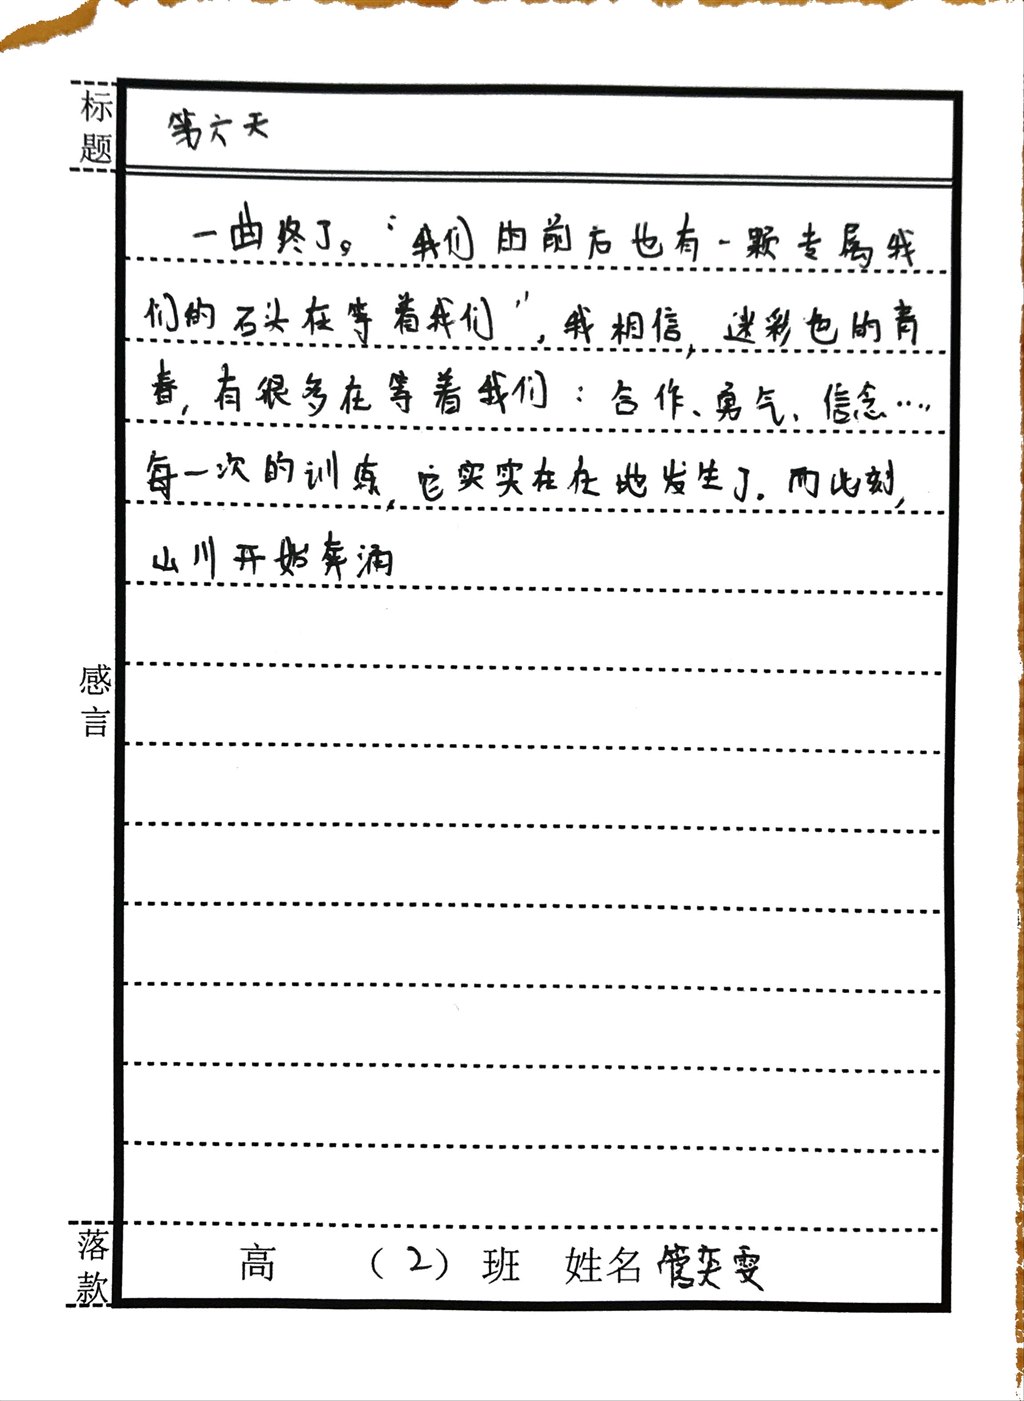 标题
第六天
一曲终了。“我们的前后也有一颗专属我
们的石头在等着我们”，我相信，迷彩色的青
春，有很多在等着我们：合作、勇气、信念……
每一次的训练，它实实在在地发生了。而此刻，
山川开始奔涌
感言
落款
高 （2）班 姓名 管奕雯